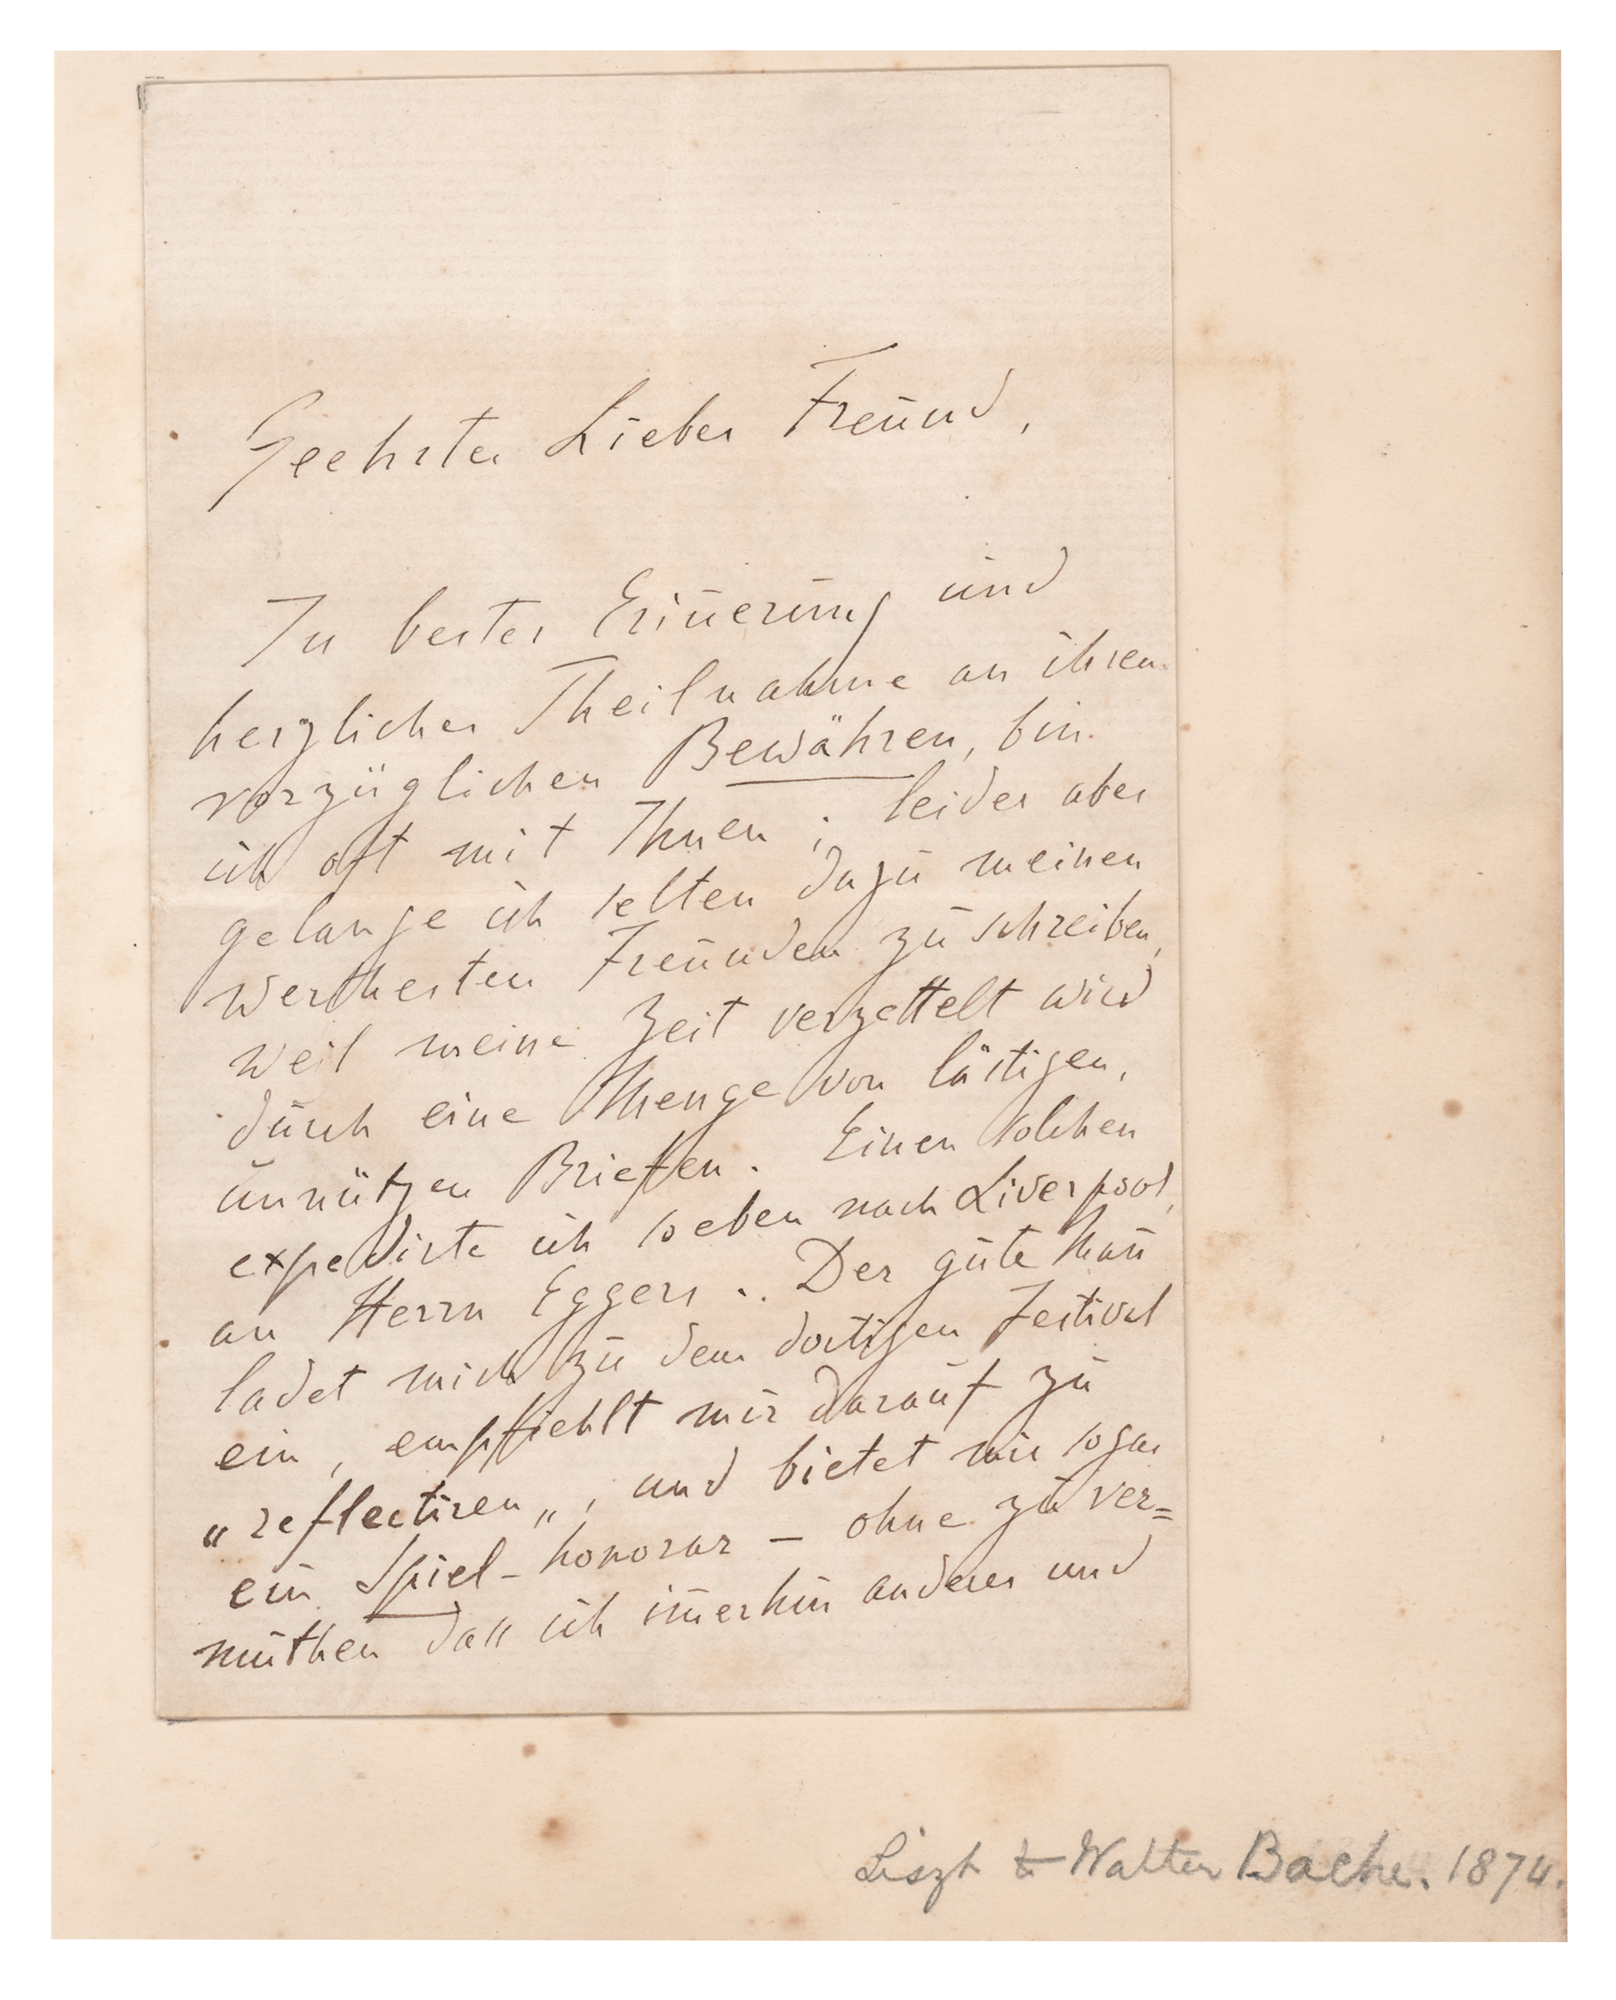 Geehrter Lieber Freund,
In bester Erin̄erung und
herzlicher Theilnahme an ihren
vorzüglichen Bewähren, bin
ich oft mit Ihnen; leider aber
gelange ich selten dazu meinen
werthesten Freunden zu schreiben,
weil meine Zeit verzettelt wird
durch eine Menge von lästigen,
unnützen Briefen. Einen solchen
expedirte ich soeben nach Liverpool,
an Herrn Eggers.. Der gute Man̄
ladet mich zu dem dortigen Festival
ein, empfiehlt mir darauf zu
„reflectiren„, und bietet mir sogar
ein Spiel-honorar – ohne zu ver=
muthen dass ich im̄erhin anderes und
Liszt to Walter Bache. 1874.